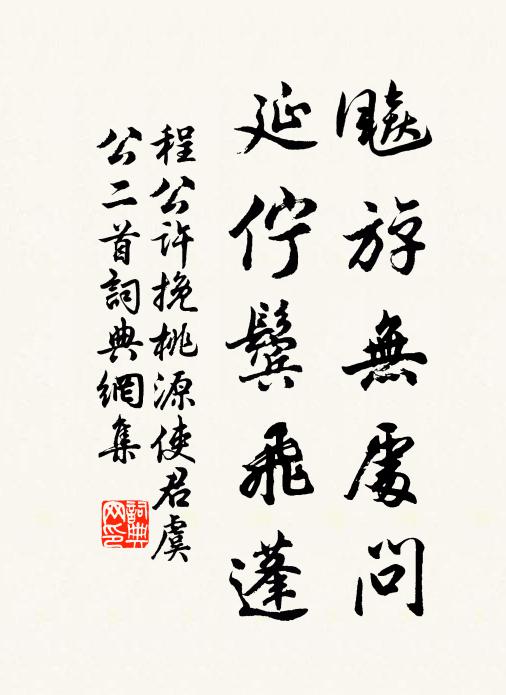 飈斿無處問
延佇鬢飛蓬
程公許挽桃源使君虞
公二首詞典網集
詞典網印